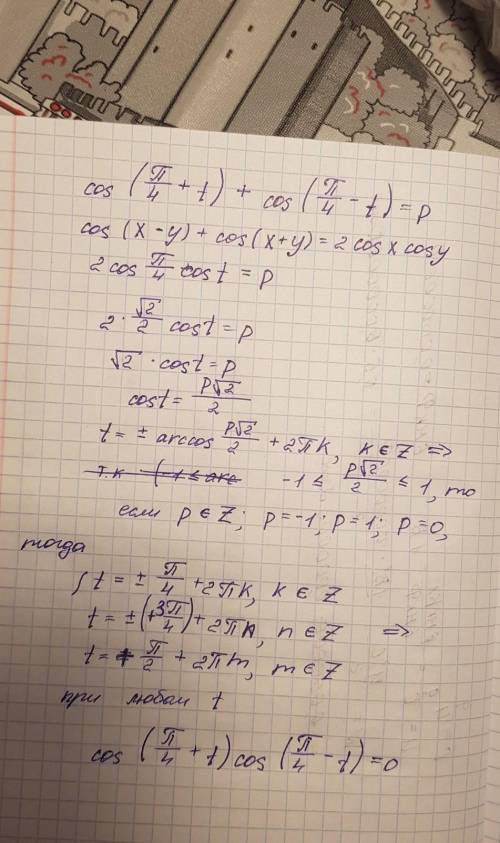 cos (π/4 + t) + cos (π/4 - t) = p
cos (x - y) + cos (x + y) = 2 cos x cos y
2 cos π/4 cos t = p
2 · √2/2 cos t = p
√2 · cos t = p
cos t = p√2/2
t = ± arccos p√2/2 + 2πk, k ∈ Z ⇒
т.к (-1 ≤ arc -1 ≤ p√2/2 ≤ 1, то
если p ∈ Z; p = -1; p = 1; p = 0,
тогда
t = ± π/4 + 2πk, k ∈ Z
t = ± (+3π/4) + 2πn, n ∈ Z ⇒
t = π/2 + 2πm, m ∈ Z
при любом t
cos (π/4 + t) cos (π/4 - t) = 0